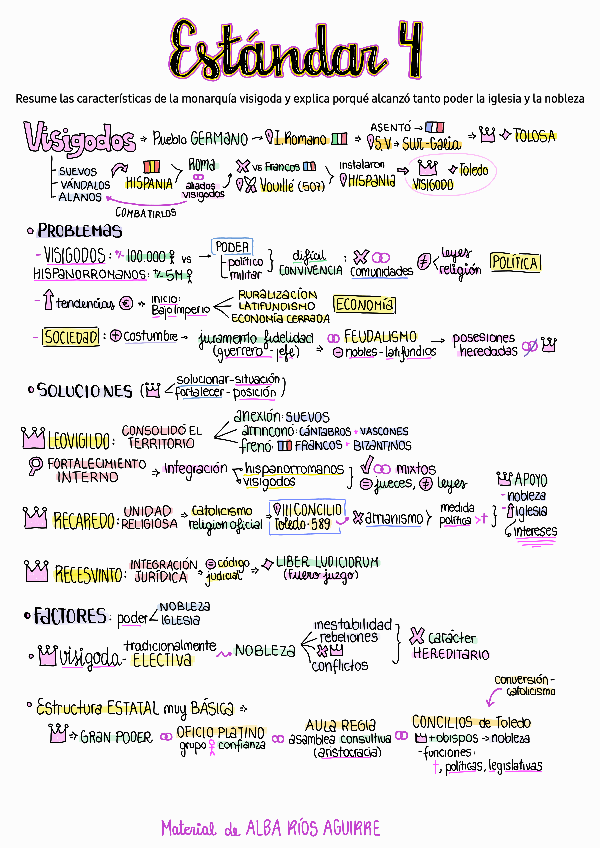 Estándar 4
Resume las características de la monarquía visigoda y explica porqué alcanzó tanto poder la iglesia y la nobleza
Visigodos → Pueblo GERMANO → I. Romano ASENTÓ → S.V → SUR-Galia → TOLOSA
SUEVOS
VÁNDALOS
ALANOS
HISPANIA
Roma
aliados
visigodos
COMBATIRLOS
vs Francos
Vouillé (507)
instalaron
HISPANIA
Toledo
VISIGODO
PROBLEMAS
- VISIGODOS: +/- 100.000 vs
HISPANORROMANOS: +/- 5M
PODER
político
militar
difícil
CONVIVENCIA
: comunidades
≠ leyes
religión
POLÍTICA
- tendencias € → inicio:
Bajo Imperio
RURALIZACIÓN
LATIFUNDISMO
ECONOMÍA CERRADA
ECONOMÍA
- SOCIEDAD: + costumbre → juramento fidelidad
(guerrero - jefe)
→ FEUDALISMO
nobles - latifundios
→ posesiones
heredadas
SOLUCIONES ( solucionar - situación
fortalecer - posición)
LEOVIGILDO: CONSOLIDÓ EL
TERRITORIO
anexión: SUEVOS
arrinconó: CÁNTABROS + VASCONES
frenó: FRANCOS + BIZANTINOS
FORTALECIMIENTO
INTERNO
→ integración
hispanorromanos
visigodos
mixtos
= jueces, ≠ leyes
RECAREDO: UNIDAD
RELIGIOSA
→ catolicismo
religión oficial
III CONCILIO
Toledo - 589
arrianismo
medida
política > †
APOYO
- nobleza
- iglesia
intereses
RECESVINTO: INTEGRACIÓN
JURÍDICA
→ = código
judicial
→ LIBER LUDICIORUM
(Fuero juzgo)
FACTORES: poder
NOBLEZA
IGLESIA
visigoda - tradicionalmente
ELECTIVA
NOBLEZA
inestabilidad
rebeliones
conflictos
carácter
HEREDITARIO
Estructura ESTATAL muy BÁSICA →
conversión -
catolicismo
→ GRAN PODER
OFICIO PLATINO
grupo confianza
AULA REGIA
asamblea consultiva
(aristocracia)
CONCILIOS de Toledo
+ obispos → nobleza
- funciones:
†, políticas, legislativas
Material de ALBA RÍOS AGUIRRE